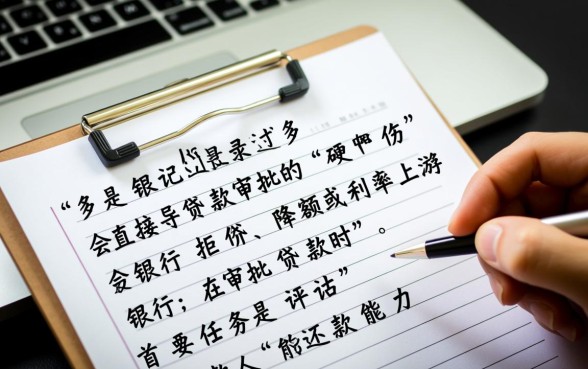 "多是银记录过多
会直接导贷款审批的"硬伤"
会银行拒贷、降额或利率上游
银行；在审批贷款时"。
首要任务是评估"
人"能还款能力